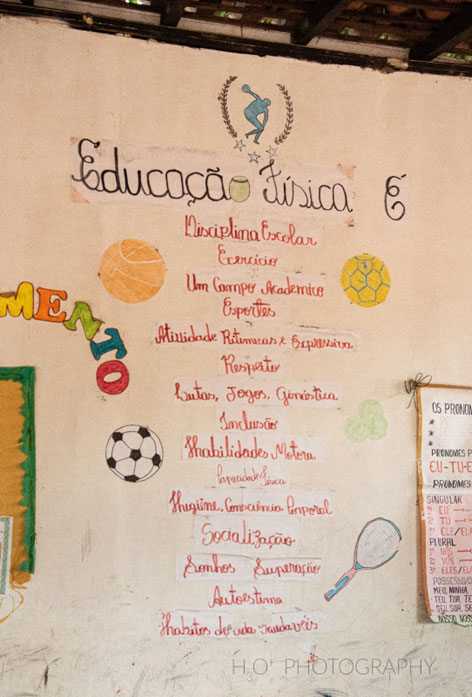 Educação Física É
Disciplina Escolar
Exercício
Um Campo Academico
Esportes
MENTO
Atividade Ritmicas e Expressiva
Respeito
Lutas, Jogos, Ginástica
Inclusão
Habilidades Motora
Capacidade Física
Higiene, Consciência Corporal
Socialização
Sonhos Superação
Autoestima
Habitos de vida saudavéis
OS PRONOM
PRONOMES P
EU-TU-E
PRONOMES
SINGULAR
1ª EU
2ª TU
3ª ELE/ELA
PLURAL
1ª NÓS
2ª VÓS
3ª ELES/ELA
POSSESSIVO
MEU, MINHA,
TEU, TUA, TE
SEU, SUA, SE
NOSSO, NOS
H3O+ PHOTOGRAPHY